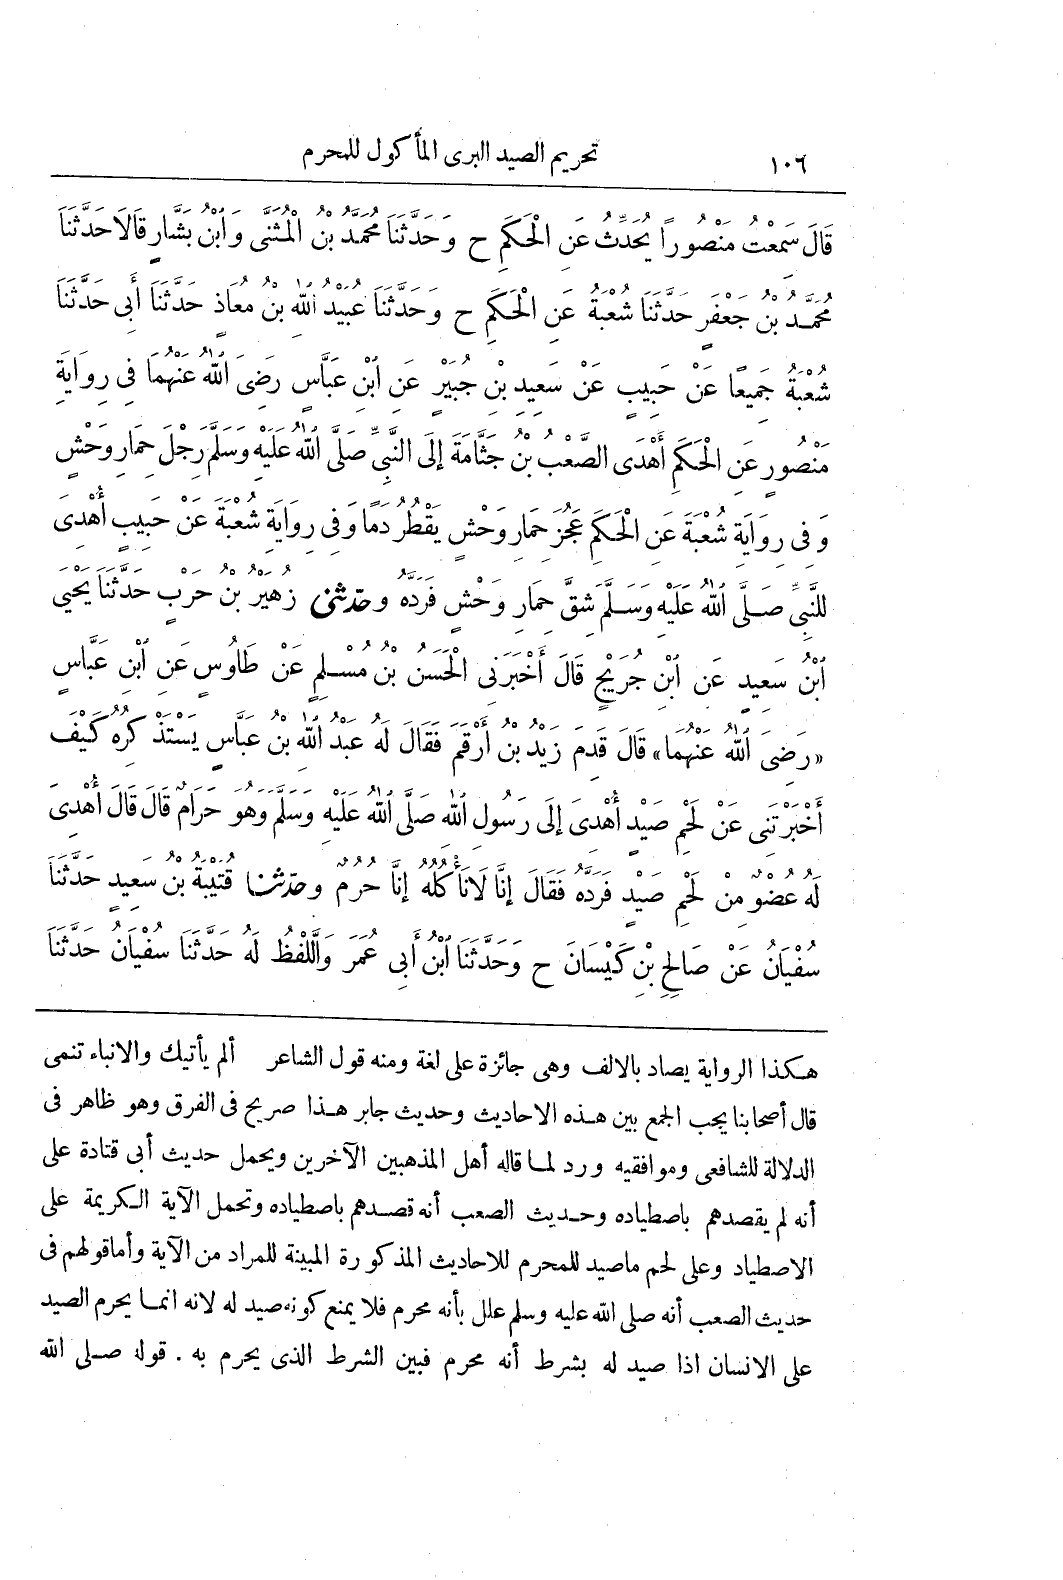 ١٠٦ تحريم الصيد البرى المأكول للمحرم
قَالَ سَمِعْتُ مَنْصُورًا يُحَدِّثُ عَنِ الْحَكَمِ ح وَحَدَّثَنَا مُحَمَّدُ بْنُ الْمُثَنَّى وَابْنُ بَشَّارٍ قَالَا حَدَّثَنَا
مُحَمَّدُ بْنُ جَعْفَرٍ حَدَّثَنَا شُعْبَةُ عَنِ الْحَكَمِ ح وَحَدَّثَنَا عُبَيْدُ اللهِ بْنُ مُعَاذٍ حَدَّثَنَا أَبِى حَدَّثَنَا
شُعْبَةُ جَمِيعًا عَنْ حَبِيبٍ عَنْ سَعِيدِ بْنِ جُبَيْرٍ عَنِ ابْنِ عَبَّاسٍ رَضِىَ اللهُ عَنْهُمَا فِى رِوَايَةِ
مَنْصُورٍ عَنِ الْحَكَمِ أَهْدَى الصَّعْبُ بْنُ جَثَّامَةَ إِلَى النَّبِىِّ صَلَّى اللهُ عَلَيْهِ وَسَلَّمَ رِجْلَ حِمَارِ وَحْشٍ
وَفِى رِوَايَةِ شُعْبَةَ عَنِ الْحَكَمِ عَجُزَ حِمَارِ وَحْشٍ يَقْطُرُ دَمًا وَفِى رِوَايَةِ شُعْبَةَ عَنْ حَبِيبٍ أُهْدِىَ
لِلنَّبِىِّ صَلَّى اللهُ عَلَيْهِ وَسَلَّمَ شِقُّ حِمَارِ وَحْشٍ فَرَدَّهُ وحَدّثَنى زُهَيْرُ بْنُ حَرْبٍ حَدَّثَنَا يَحْيَى
ابْنُ سَعِيدٍ عَنِ ابْنِ جُرَيْجٍ قَالَ أَخْبَرَنِى الْحَسَنُ بْنُ مُسْلِمٍ عَنْ طَاوُسٍ عَنِ ابْنِ عَبَّاسٍ
«رَضِىَ اللهُ عَنْهُمَا» قَالَ قَدِمَ زَيْدُ بْنُ أَرْقَمَ فَقَالَ لَهُ عَبْدُ اللهِ بْنُ عَبَّاسٍ يَسْتَذْكِرُهُ كَيْفَ
أَخْبَرْتَنِى عَنْ لَحْمِ صَيْدٍ أُهْدِىَ إِلَى رَسُولِ اللهِ صَلَّى اللهُ عَلَيْهِ وَسَلَّمَ وَهُوَ حَرَامٌ قَالَ قَالَ أُهْدِىَ
لَهُ عُضْوٌ مِنْ لَحْمِ صَيْدٍ فَرَدَّهُ فَقَالَ إِنَّا لَا نَأْكُلُهُ إِنَّا حُرُمٌ وحدثنا قُتَيْبَةُ بْنُ سَعِيدٍ حَدَّثَنَا
سُفْيَانُ عَنْ صَالِحِ بْنِ كَيْسَانَ ح وَحَدَّثَنَا ابْنُ أَبِى عُمَرَ وَاللَّفْظُ لَهُ حَدَّثَنَا سُفْيَانُ حَدَّثَنَا
هكذا الرواية يصاد بالالف وهى جائزة على لغة ومنه قول الشاعر ألم يأتيك والانباء تنمى
قال أصحابنا يجب الجمع بين هذه الاحاديث وحديث جابر هذا صريح فى الفرق وهو ظاهر فى
الدلالة للشافعى وموافقيه ورد لما قاله أهل المذهبين الآخرين ويحمل حديث أبى قتادة على
أنه لم يقصدهم باصطياده وحديث الصعب أنه قصدهم باصطياده وتحمل الآية الكريمة على
الاصطياد وعلى لحم ماصيد للمحرم للاحاديث المذكورة المبينة للمراد من الآية وأماقولهم فى
حديث الصعب أنه صلى الله عليه وسلم علل بأنه محرم فلا يمنع كونه صيد له لانه انما يحرم الصيد
على الانسان اذا صيد له بشرط أنه محرم فبين الشرط الذى يحرم به . قوله صلى الله